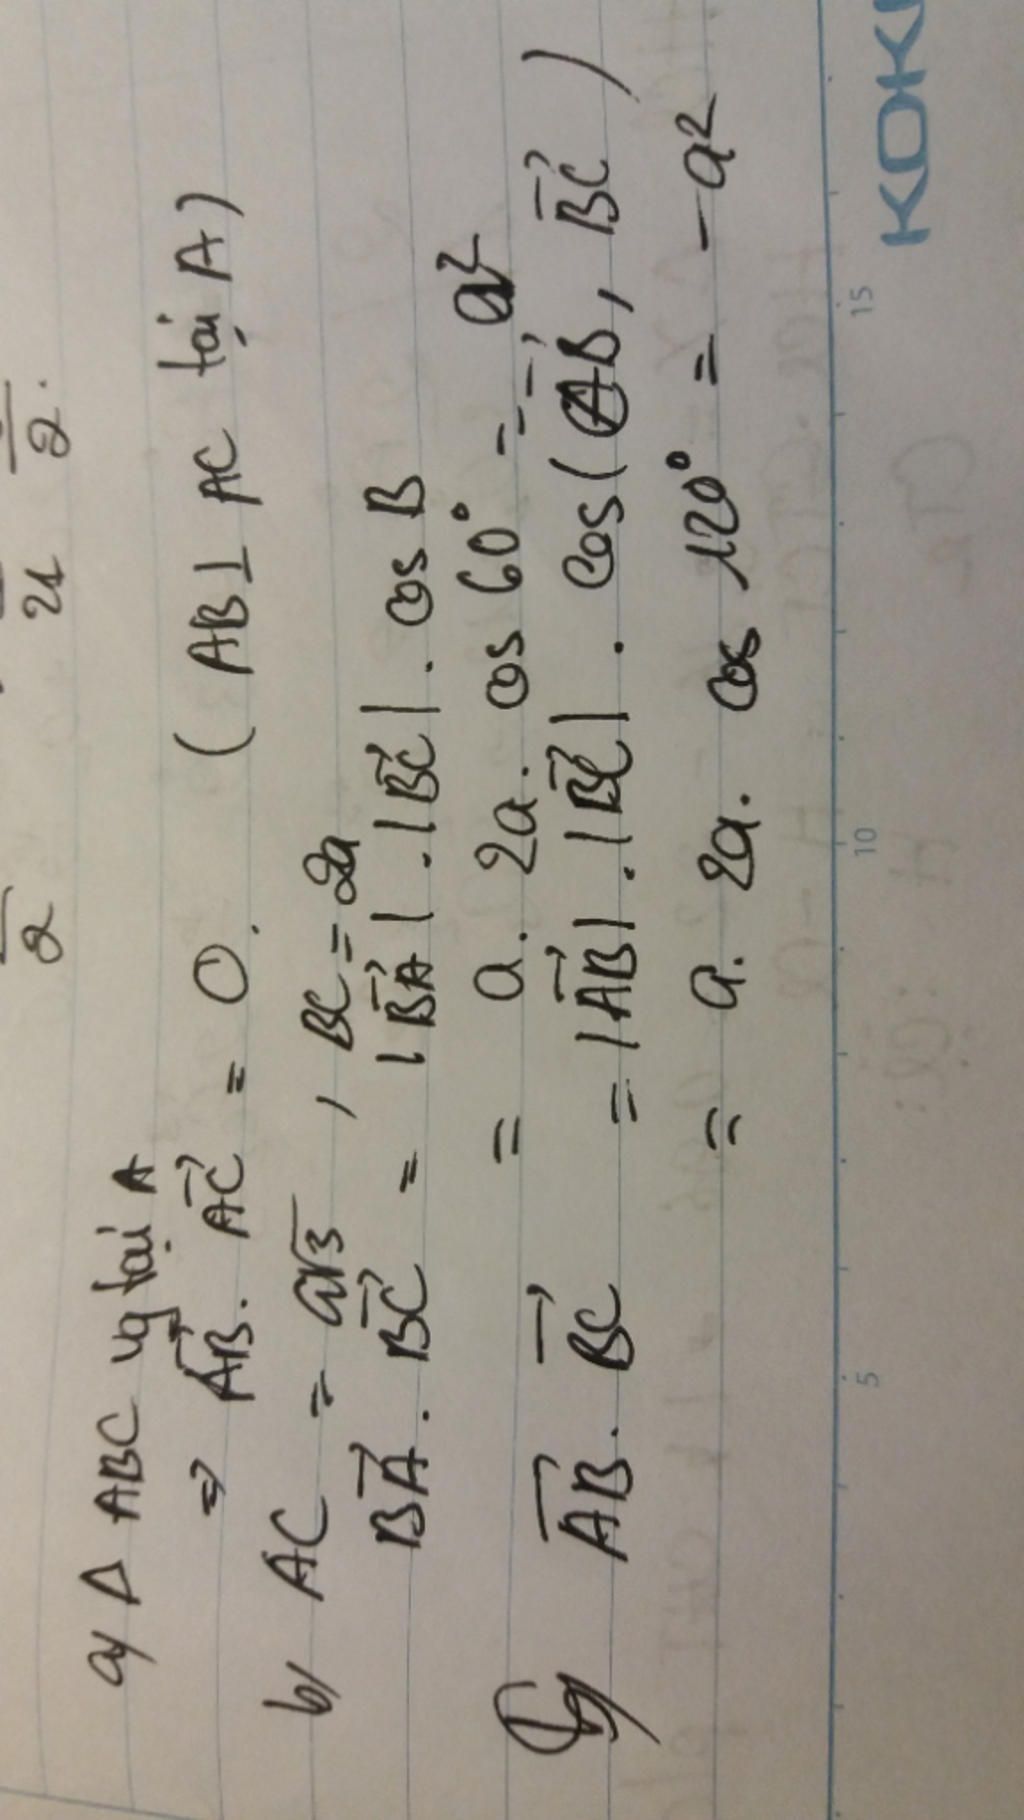 2 21 2.
a/ Δ ABC vg tại A
⇒ AB⃗. AC⃗ = 0. (AB ⊥ AC tại A)
b/ AC = a√3 , BC = 2a
BA⃗. BC⃗ = |BA⃗|.|BC⃗|. cos B
= a. 2a. cos 60° = a²
AB⃗. BC⃗ = |AB⃗|.|BC⃗|. cos(AB⃗, BC⃗)
= a. 2a. cos 120° = -a²
5 10 15